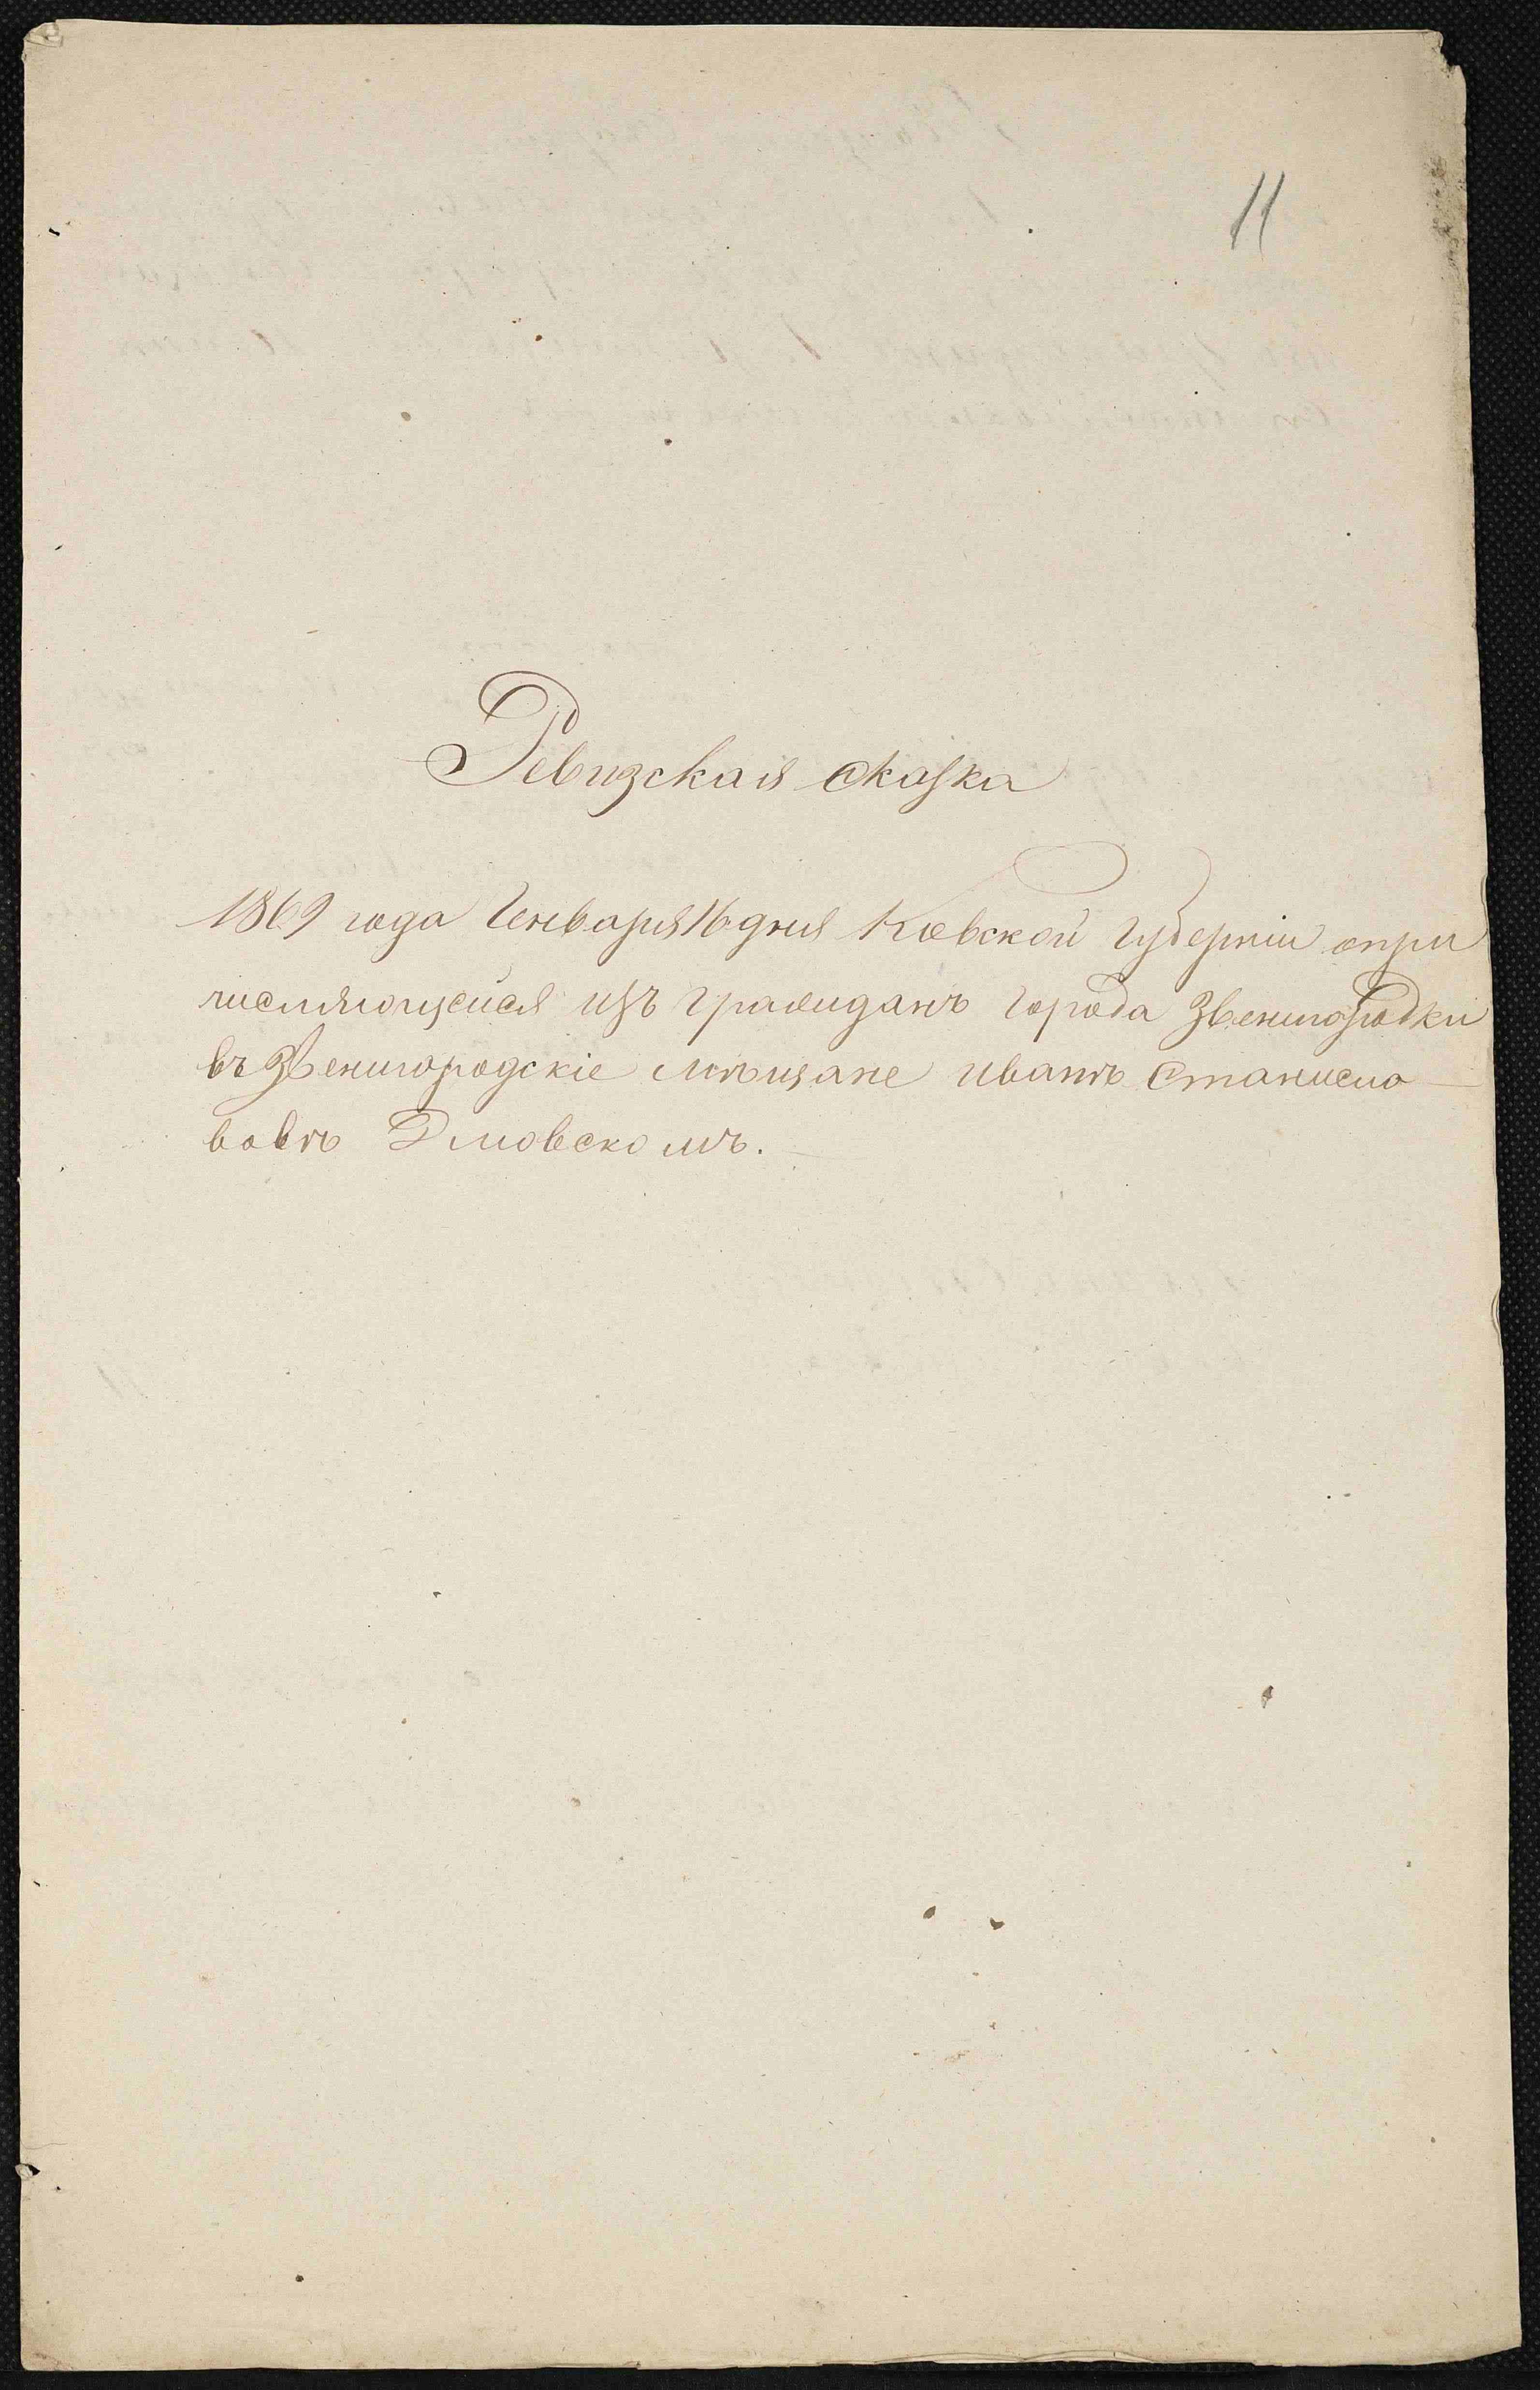 11
Ревизская сказка
1869 года Генваря 16 дня Киевской Губерніи опри
числяющейся изъ гражданъ города Звенигородки
въ Звенигородскіе мѣщане Иванѣ Станисла
вовѣ Дмовскомъ.